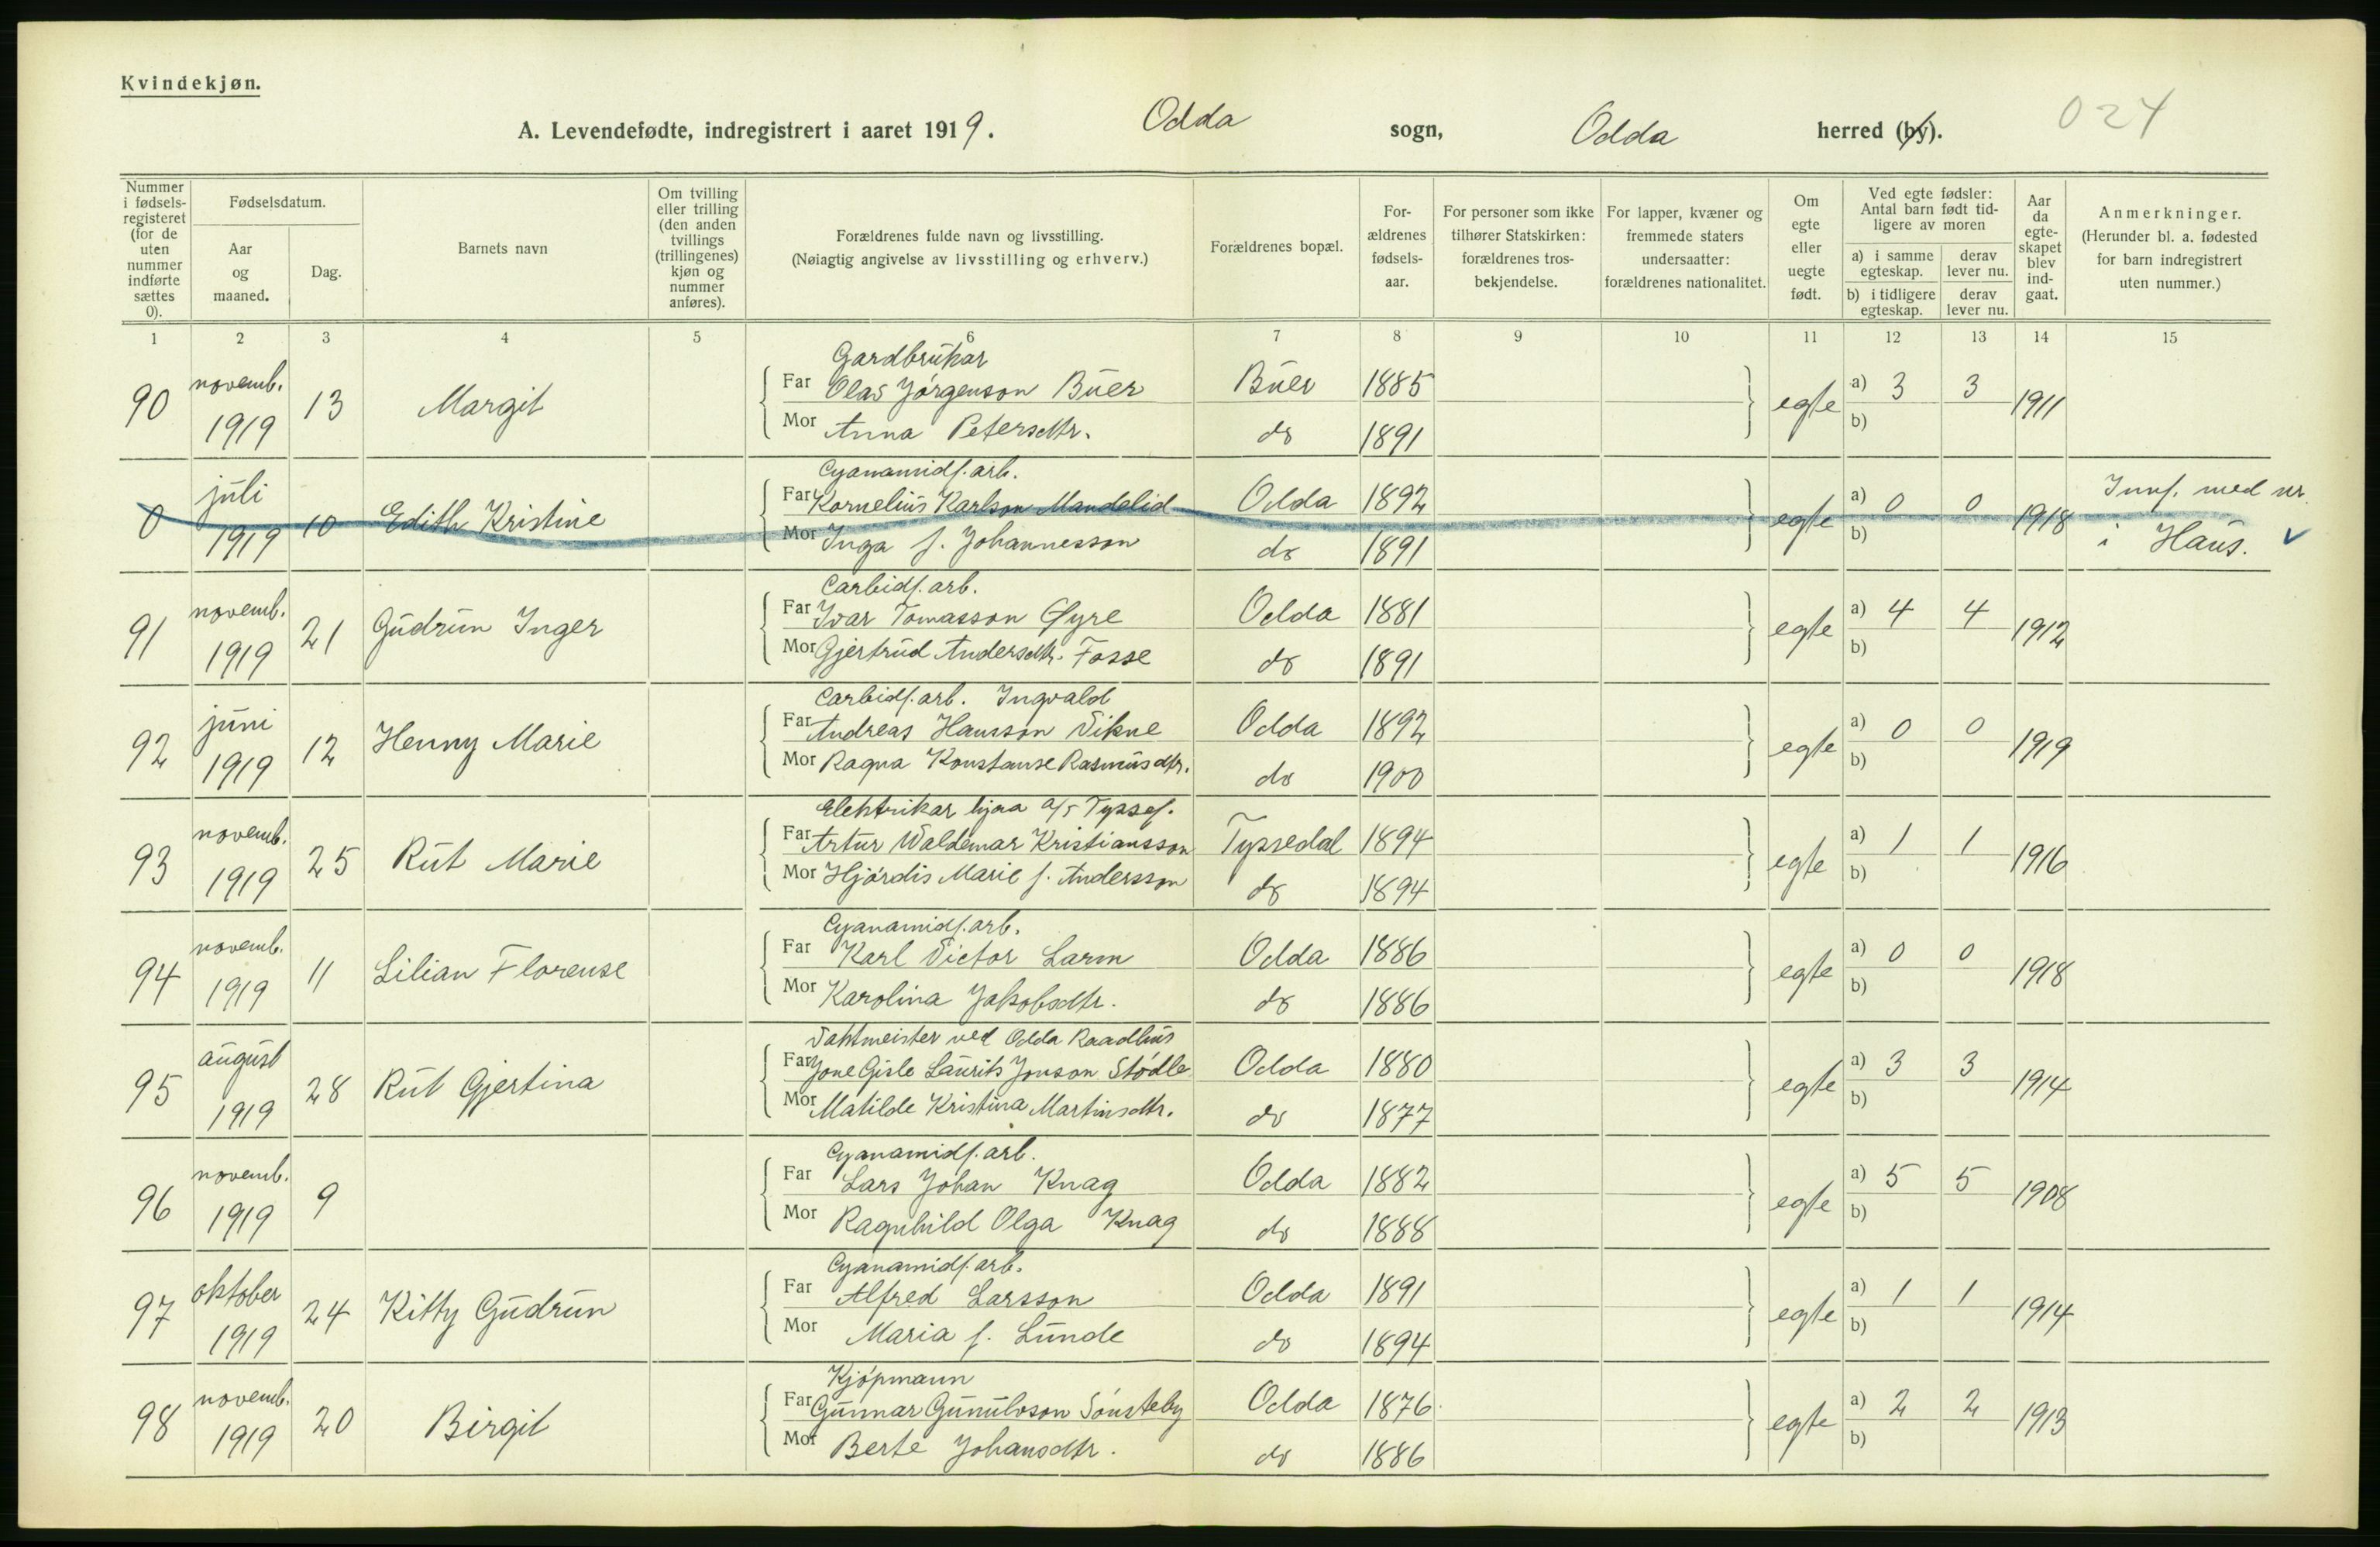 Kvindekjøn.
A. Levendefødte, indregistrert i aaret 1919. Odda sogn, Odda herred (by). 024
Nummer i fødselsregisteret (for de uten nummer indførte sættes 0).
Fødselsdatum.
Aar og maaned.
Dag.
Barnets navn
Om tvilling eller trilling (den anden tvillings (trillingenes) kjøn og nummer anføres).
Forældrenes fulde navn og livsstilling.
(Nøiagtig angivelse av livsstilling og erhverv.)
Forældrenes bopæl.
Forældrenes fødselsaar.
For personer som ikke tilhører Statskirken: forældrenes trosbekjendelse.
For lapper, kvæner og fremmede staters undersaatter: forældrenes nationalitet.
Om egte eller uegte født.
Ved egte fødsler: Antal barn født tidligere av moren
a) i samme egteskap. derav lever nu.
b) i tidligere egteskap. derav lever nu.
Aar da egteskapet blev indgaat.
Anmerkninger.
(Herunder bl. a. fødested for barn indregistrert uten nummer.)
1 2 3 4 5 6 7 8 9 10 11 12 13 14 15
Gardbrukar
90 novemb. 1919 13 Margit Far Olav Jørgenson Buer Buer 1885 egte a) 3 3 1911
Mor Anna Petersdtr. do 1891 b)
Cyanamidf. arb.
0 juli 1919 10 Edith Kristine Far Kornelius Karlson Mandelid Odda 1892 egte a) 0 0 1918 Innf. med nr.
Mor Inga f. Johannesson do 1891 b) i Haus.
Carbidf. arb.
91 novemb. 1919 21 Gudrun Inger Far Ivar Tomasson Øyre Odda 1881 egte a) 4 4 1912
Mor Gjertrud Andersdtr. Fosse do 1891 b)
Carbidf. arb. Ingvald
92 juni 1919 12 Henny Marie Far Andreas Hansson Vikne Odda 1892 egte a) 0 0 1919
Mor Ragna Konstanse Rasmusdtr. do 1900 b)
Elektrikar hjaa a/s Tyssef.
93 novemb. 1919 25 Rut Marie Far Artur Waldemar Kristiansson Tyssedal 1894 egte a) 1 1 1916
Mor Hjørdis Marie f. Andersson do 1894 b)
Cyanamidf. arb.
94 novemb. 1919 11 Lilian Florense Far Karl Victor Larm Odda 1886 egte a) 0 0 1918
Mor Karolina Jakobsdtr. do 1886 b)
Vaktmeister ved Odda Raadhus
95 august 1919 28 Rut Gjertina Far Jone Gisle Laurits Jonson Stødle Odda 1880 egte a) 3 3 1914
Mor Matilde Kristina Martinsdtr. do 1877 b)
Cyanamidf. arb.
96 novemb. 1919 9 Far Lars Johan Knag Odda 1882 egte a) 5 5 1908
Mor Ragnhild Olga Knag do 1888 b)
Cyanamidf. arb.
97 oktober 1919 24 Kitty Gudrun Far Alfred Larsson Odda 1891 egte a) 1 1 1914
Mor Maria f. Lunde do 1894 b)
Kjøpmann
98 novemb. 1919 20 Birgit Far Gunnar Gunulvson Sønsteby Odda 1876 egte a) 2 2 1913
Mor Berte Johansdtr. do 1886 b)